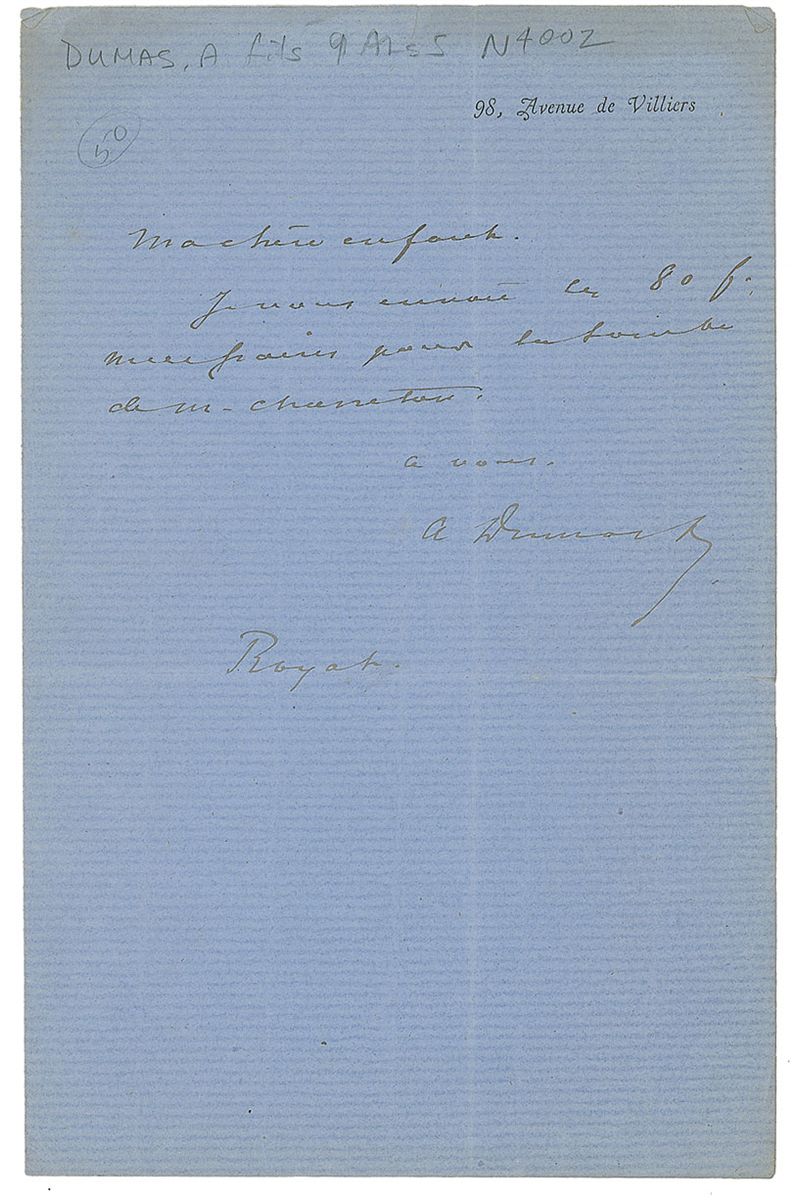 DUMAS, A fils 9 ALsS N4002
50
98, Avenue de Villiers
Ma chère enfant.
Je vous envoie les 80 f.
nécessaires pour la tombe
de M. Charreton.
a vous.
A Dumas f
Royat.